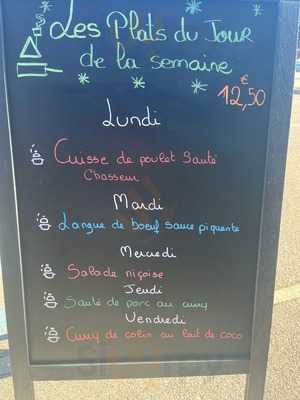 Les Plats du Jour
de la semaine
€
12,50
Lundi
Cuisse de poulet Sauté
Chasseur
Mardi
Langue de boeuf sauce piquante
Mercredi
Salade niçoise
Jeudi
Sauté de porc au curry
Vendredi
Curry de colin au lait de coco